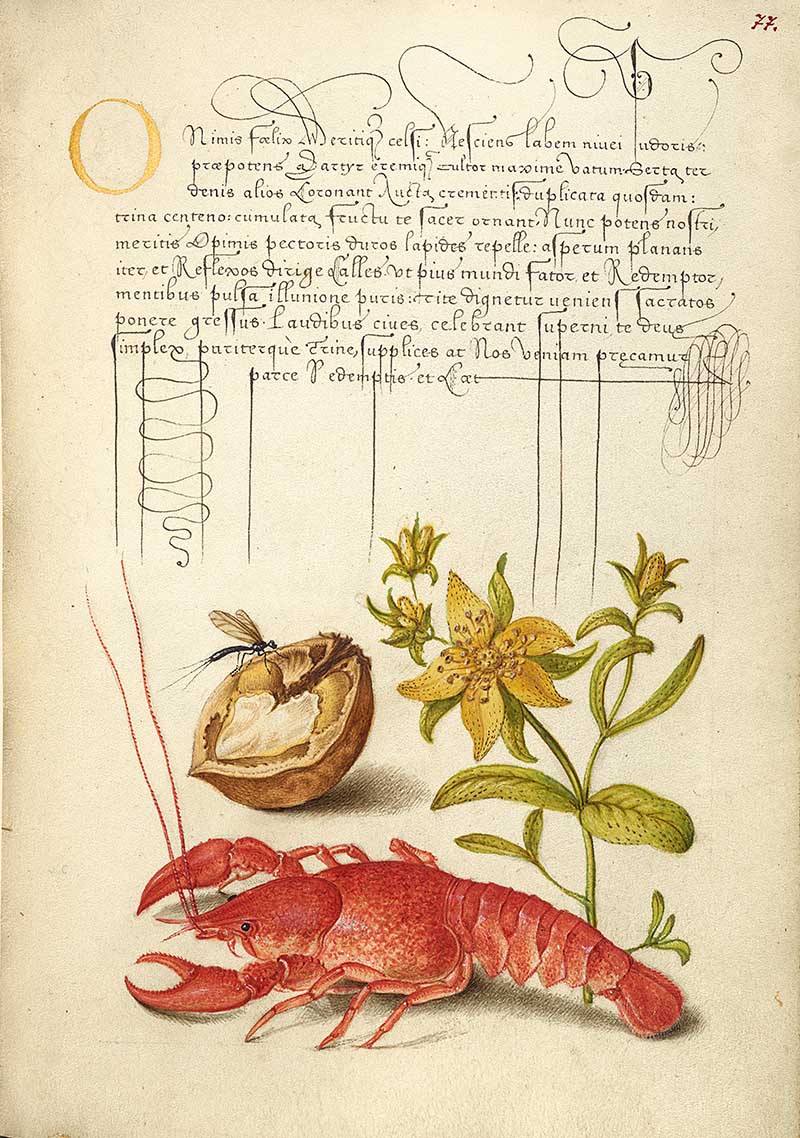 77.
O Nimis fœlix Meritiq; celsi: Nesciens labem nivei pudoris:
præpotens Martyr eremiq; cultor maxime vatum. Serta ter
denis alios Coronant Aucta crementis: duplicata quosdam:
trina centeno: cumulata fructu te sacer ornant. Nunc potens nostri,
meritis Opimis pectoris duros lapides repelle: asperum planans
iter, et Reflexos dirige Calles. Vt pius mundi Sator, et Redemptor,
mentibus pulsa illunione puris: rite dignetur veniens sacratos
ponere gressus. Laudibus cives, celebrant superni, te deus
simplex, pariterquè Trine, supplices at Nos veniam precamur
parce Redemptis. et Cæt